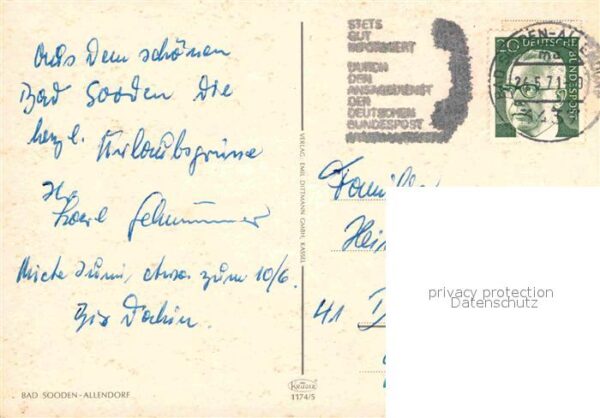 Aus dem schönen
Bad Sooden die
herzl. Urlaubsgrüsse
Ihr
Karl
Mitte Juni, etwa zum 10/6.
Bis dahin.
BAD SOODEN-ALLENDORF
VERLAG: EMIL DITTMANN GMBH, KASSEL
Krüger
1174/5
STETS
GUT
INFORMIERT
DURCH
DEN
ANSAGEDIENST
DER
DEUTSCHEN
BUNDESPOST
BAD SOODEN-ALLENDORF
24.5.71
20 DEUTSCHE BUNDESPOST
Familie
Hein
41 D
privacy protection
Datenschutz